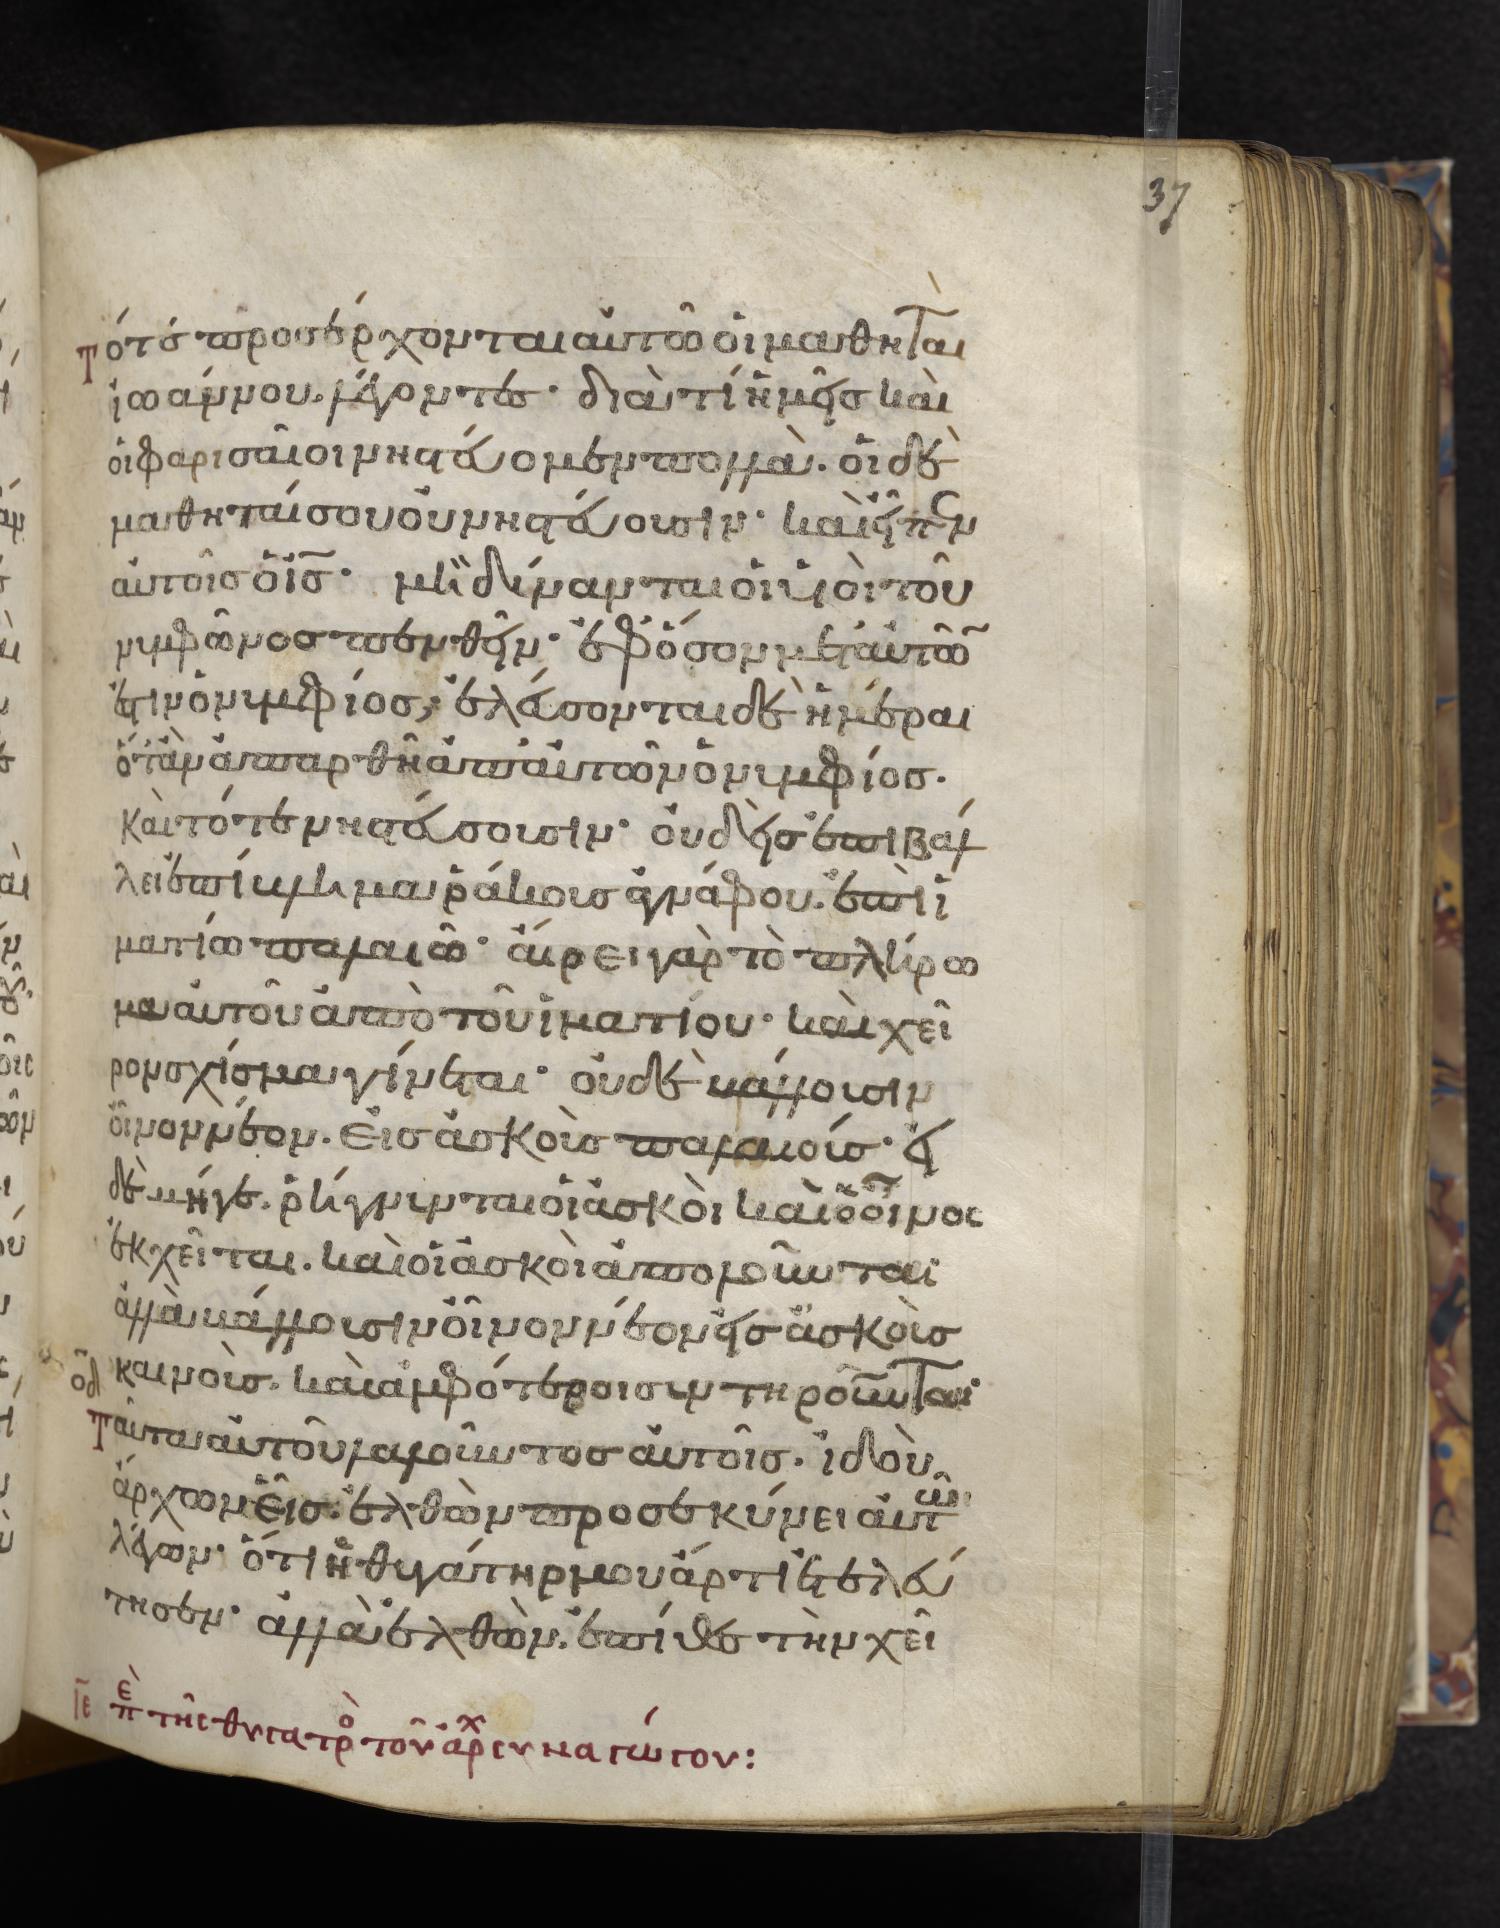 37
Τότε προσέρχονται αὐτῶ οἱ μαθηταὶ
ἰωάννου. λέγοντες· διὰ τί ἡμεῖς καὶ
οἱ φαρισαῖοι νηστεύομεν πολλὰ. οἱ δὲ
μαθηταί σου οὐ νηστεύουσιν· καὶ εἶπεν
αὐτοῖς ὁ ις̅· μὴ δύνανται οἱ υἱοὶ τοῦ
νυμφῶνος πενθεῖν· ἐφ' ὅσον μετ' αὐτῶν
ἐστιν ὁ νυμφίος; ἐλεύσονται δὲ ἡμέραι
ὅταν ἀπαρθῆ ἀπ' αὐτῶν ὁ νυμφίος.
καὶ τότε νηστεύσουσιν· οὐδεὶς ἐπιβάλ
λει ἐπίβλημα ῥάκους ἀγνάφου. ἐπὶ ἱ
ματίω παλαιῶ· αἴρει γὰρ τὸ πλήρω
μα αὐτοῦ ἀπὸ τοῦ ἱματίου· καὶ χεῖ
ρον σχίσμα γίνεται· οὐδὲ βάλλουσιν
οἶνον νέον. εἰς ἀσκοὺς παλαιούς· εἰ
δὲ μήγε. ῥήγνυνται οἱ ἀσκοὶ καὶ ὁ οἶνος
ἐκχεῖται. καὶ οἱ ἀσκοὶ ἀπολοῦνται
ἀλλὰ βάλλουσιν οἶνον νέον εἰς ἀσκοὺς
καινοὺς. καὶ ἀμφότεροι συντηροῦνται
οδ
Ταῦτα αὐτοῦ λαλοῦντος αὐτοῖς. ἰδοὺ
ἄρχων εἷς. ἐλθὼν προσεκύνει αὐτῶ
λέγων· ὅτι ἡ θυγάτηρ μου ἄρτι ἐτελεύ
τησεν· ἀλλὰ ἐλθὼν. ἐπίθες τὴν χεῖ
ιε ̅ἐπ τῆς θυγατρὸ τοῦ ἀρχ συναγώγου: